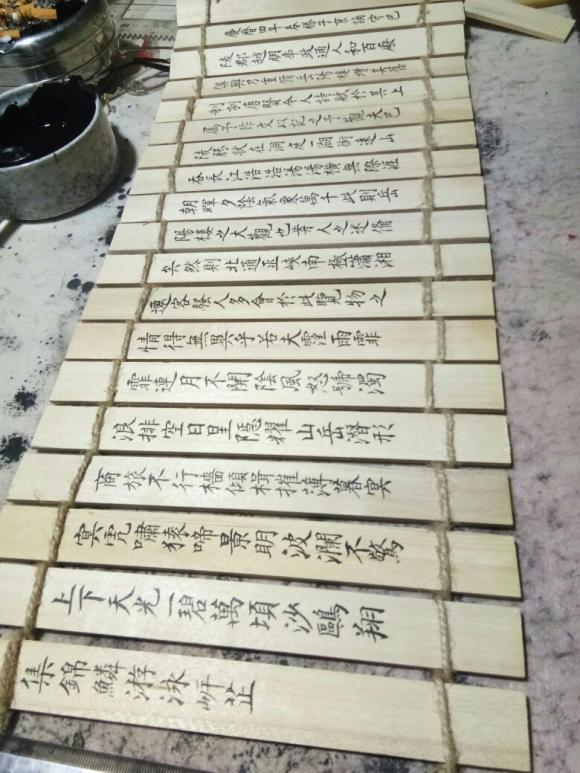 慶曆四年春滕子京謫守巴
陵郡越明年政通人和百廢
俱興乃重脩岳陽樓增其舊
制刻唐賢今人詩賦於其上
屬予作文以記之予觀夫巴
陵勝狀在洞庭一湖銜遠山
吞長江浩浩湯湯橫無際涯
朝暉夕陰氣象萬千此則岳
陽樓之大觀也前人之述俻
矣然則北通巫峽南極瀟湘
遷客騷人多會於此覽物之
情得無異乎若夫霪雨霏
霏連月不開陰風怒號濁
浪排空日星隱耀山岳潛形
商旅不行檣傾楫摧薄暮冥
冥虎嘯猿啼景明波瀾不驚
上下天光一碧萬頃沙鷗翔
集錦鱗游泳岸芷